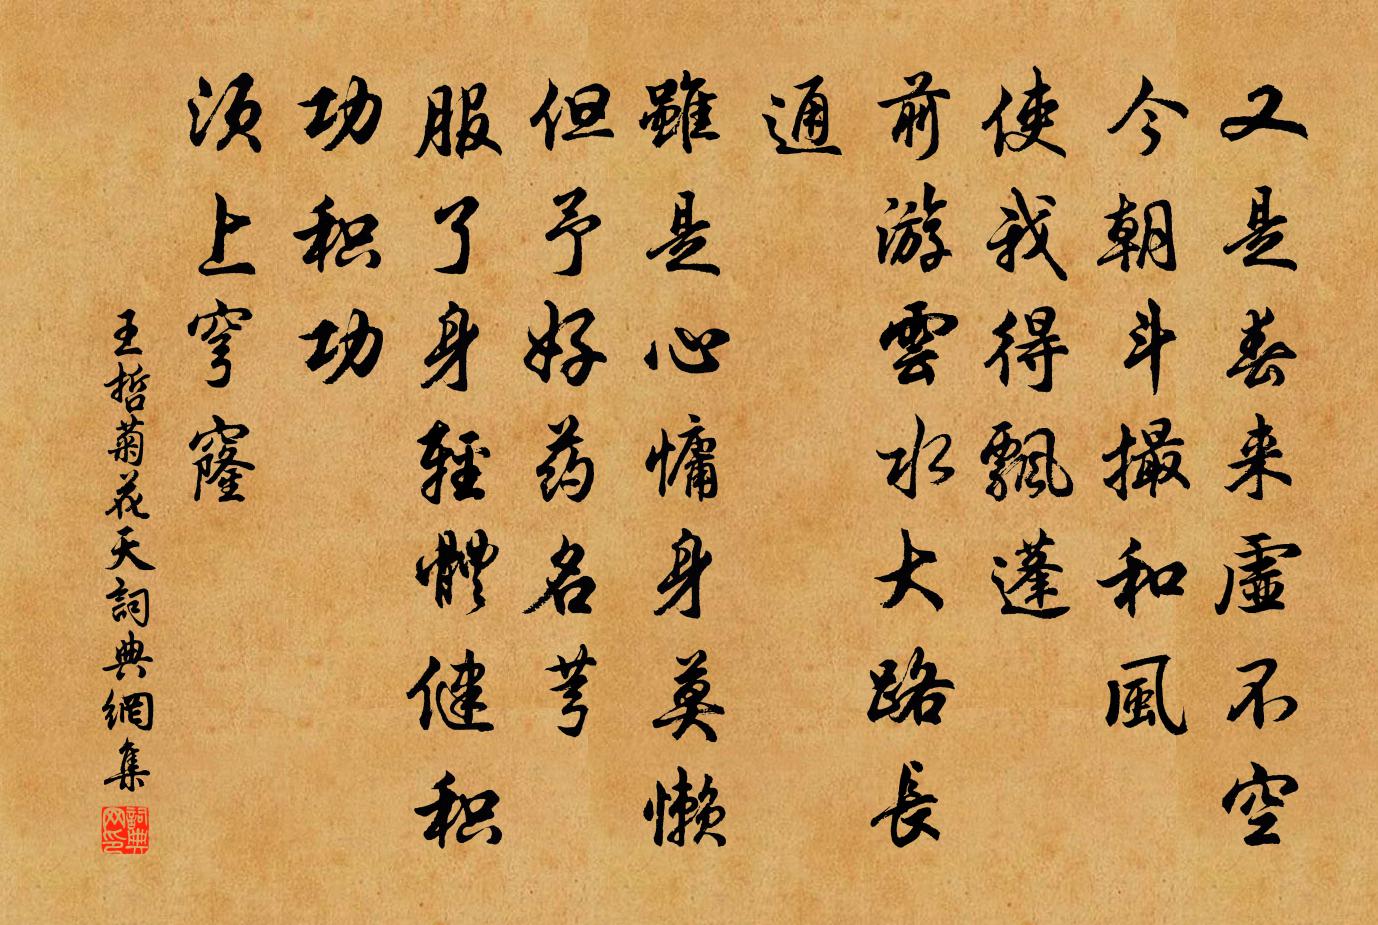 又是春来虛不空
今朝斗撮和風
使我得飄蓬
前游雲水大路長
通
雖是心慵身莫懶
但予好药名芎
服了身輕體健积
功积功
须上穹窿
王哲菊花天詞典網集
詞典网印